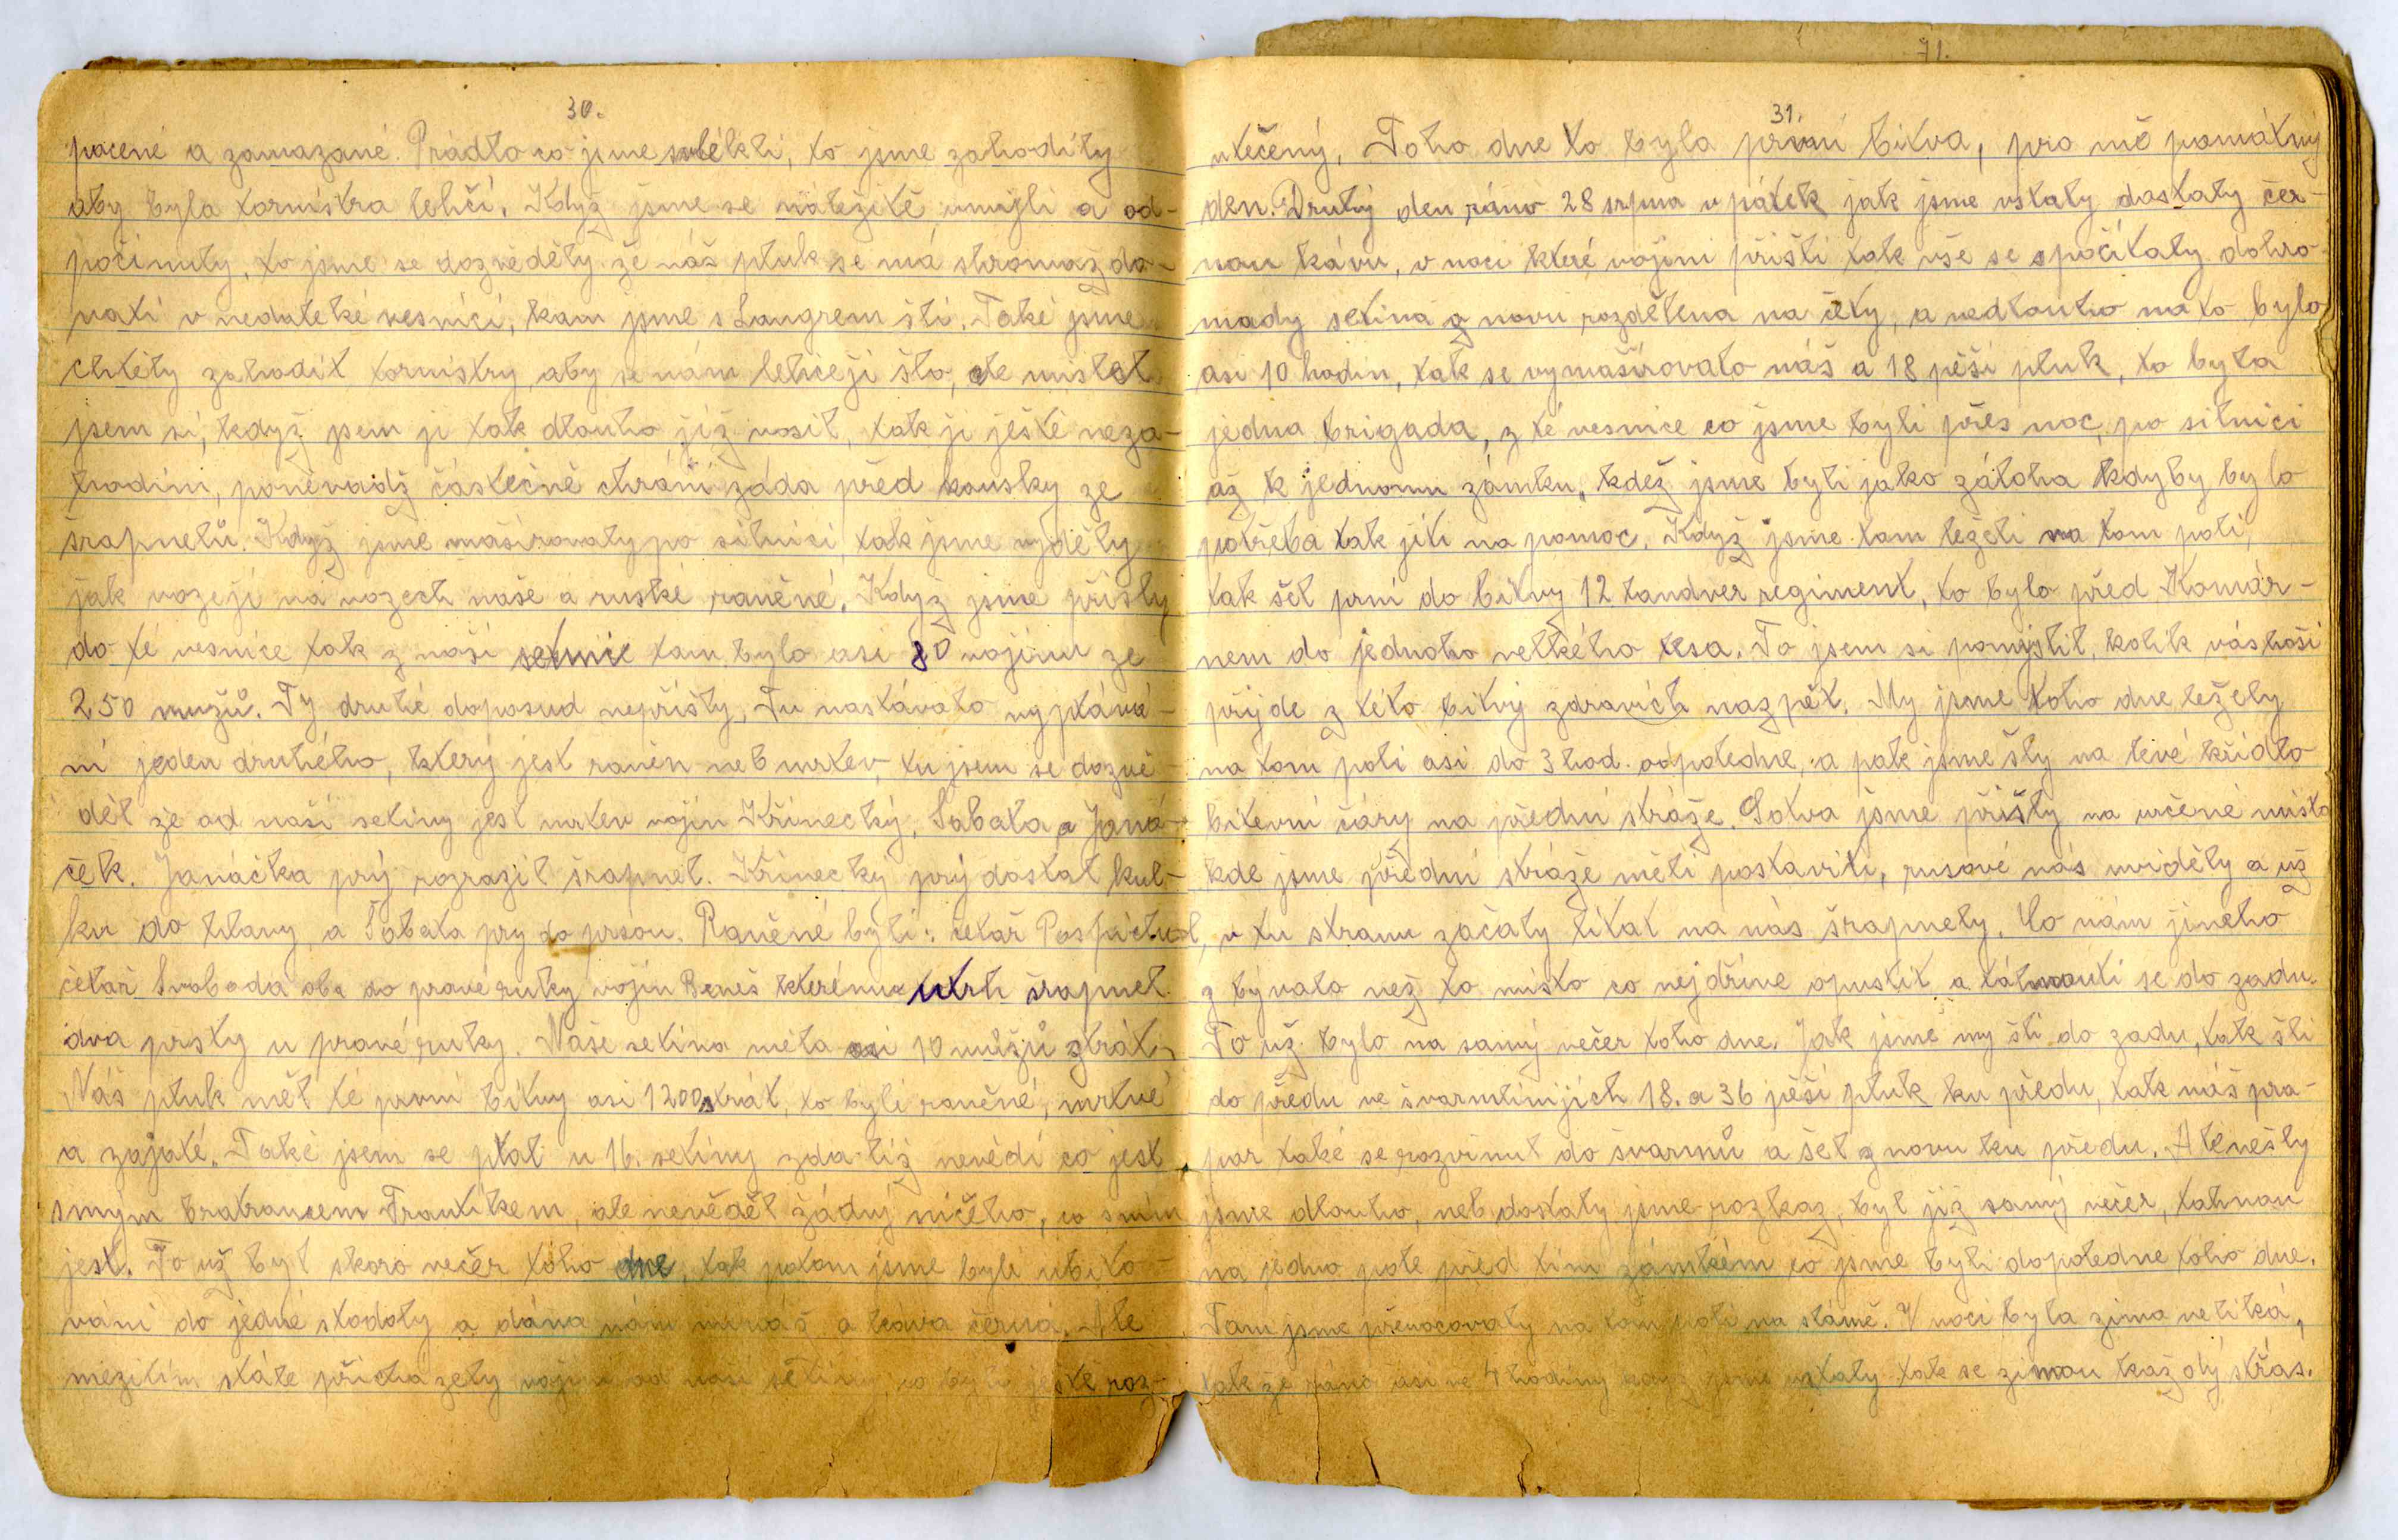 30.
pocené a zamazané. Prádlo co jsme svlékli, to jsme zahodily
aby byla tornistra lehčí. Když jsme se náležitě umyli a od-
počinuly, to jsme se dozvěděly že náš pluk se má shromaždo-
vati v nedaleké vesnici, kam jsme s Langrem šli. Také jsme
chtěly zahodit tornistry, aby se nám lehčeji šlo, ale myslel
jsem si, když jsem ji tak dlouho již nosil, tak ji ještě neza-
hodím, poněvadž částečně chrání záda před kousky ze
šrapnelů. Když jsme mašírovaly po silnici, tak jsme vyděly
jak vozejí na vozech naše a ruské raněné. Když jsme přišly
do té vesnice tak z naší setnie tam bylo asi 80 vojínu ze
250 mužů. Ty druhé doposud nepřišly, Tu nastávalo vyptává-
ní jeden druhého, který jest raněn neb mrtev, tu jsem se dozvě-
děl že od naší setiny jest mrtev vojín Křinecký, Sabata a Janá-
ček. Janáčka prý rozrazil šrapnel. Křinecký prý dostal kul-
ku do hlavy a Sabata prý do prsou. Raněné byli: četař Pospíchal,
četař Svoboda oba do pravé ruky vojín Beneš kterému utrh šrapnel
dva prsty u pravé ruky. Naše setina měla asi 10 mužů ztrát.
Náš pluk měl té první bitvy asi 1200 ztrát, to byli raněné, mrtvé
a zajaté. Také jsem se ptal u 16. setiny zda-liž nevědí co jest
smým bratrancem Frantíkem, ale nevěděl žádný ničeho, co sním
jest. To už byl skoro večer toho dne, tak potom jsme byli ubito-
váni do jedné stodoly a dána nám menáž a káva černá. Ale
mezitím stále přicházely vojíni od naší setiny, co byli ještě roz-
31.
utečený. Toho dne to byla první bitva, pro mě památný
den. Druhý den ráno 28 srpna v pátek jak jsme vstaly dostaly čer-
nou kávu, v noci které vojíni přišli tak vše se spočítaly dohro-
mady setina z novu rozdělena na čety, a nedlouho na to bylo
asi 10 hodin, tak se vymašírovalo náš a 18 pěší pluk, to byla
jedna brigada, z té vesnice co jsme byli přes noc, po silnici
až k jednomu zámku, kdež jsme byli jako záloha kdyby bylo
potřeba tak jíti na pomoc. Když jsme tam leželi na tom poli,
tak šel prní do bitvy 12 landver regiment, to bylo před Komár-
nem do jednoho velkého lesa. To jsem si pomyslil, kolik vás hoši
příjde z této bitvy zdravích nazpět. My jsme toho dne ležely
na tom poli asi do 3 hod. odpoledne, a pak jsme šly na levé křídlo
bitevní čáry na přední stráže. Sotva jsme přišly na určené místo
kde jsme přední stráže měli postaviti, rusové nás uviděly a už
v tu stranu začaly lítat na nás šrapnely. Co nám jineho
z bývalo než to místo co nejdříve opustit a táhnouti se do zadu.
To už bylo na samý večer toho dne. Jak jsme my šli do zadu, tak šli
do předu ve švarmlinijích 18. a 36 pěší pluk ku předu, tak náš pra-
por také se rozvinul do švarmů a šel znovu ku předu. Ale nešly
jsme dlouho, neb dostaly jsme rozkaz, byl již samý večer, tahnou
na jedno pole před tím zámkem co jsme byli dopoledne toho dne.
Tam jsme přenocovaly na tom poli na slámě. V noci byla zima veliká,
tak že ráno asi ve 4 hodiny když jsme vstaly tak se zimou každý střás.
71.